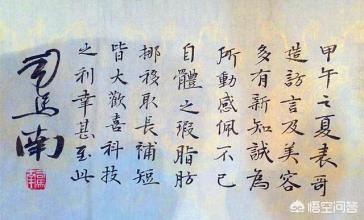 甲午之夏表哥
造訪言及美容
多有新知誠為
所動感佩不已
自體之瑕脂肪
挪移取長補短
皆大歡喜科技
之利幸甚至此
司馬南
悟空问答